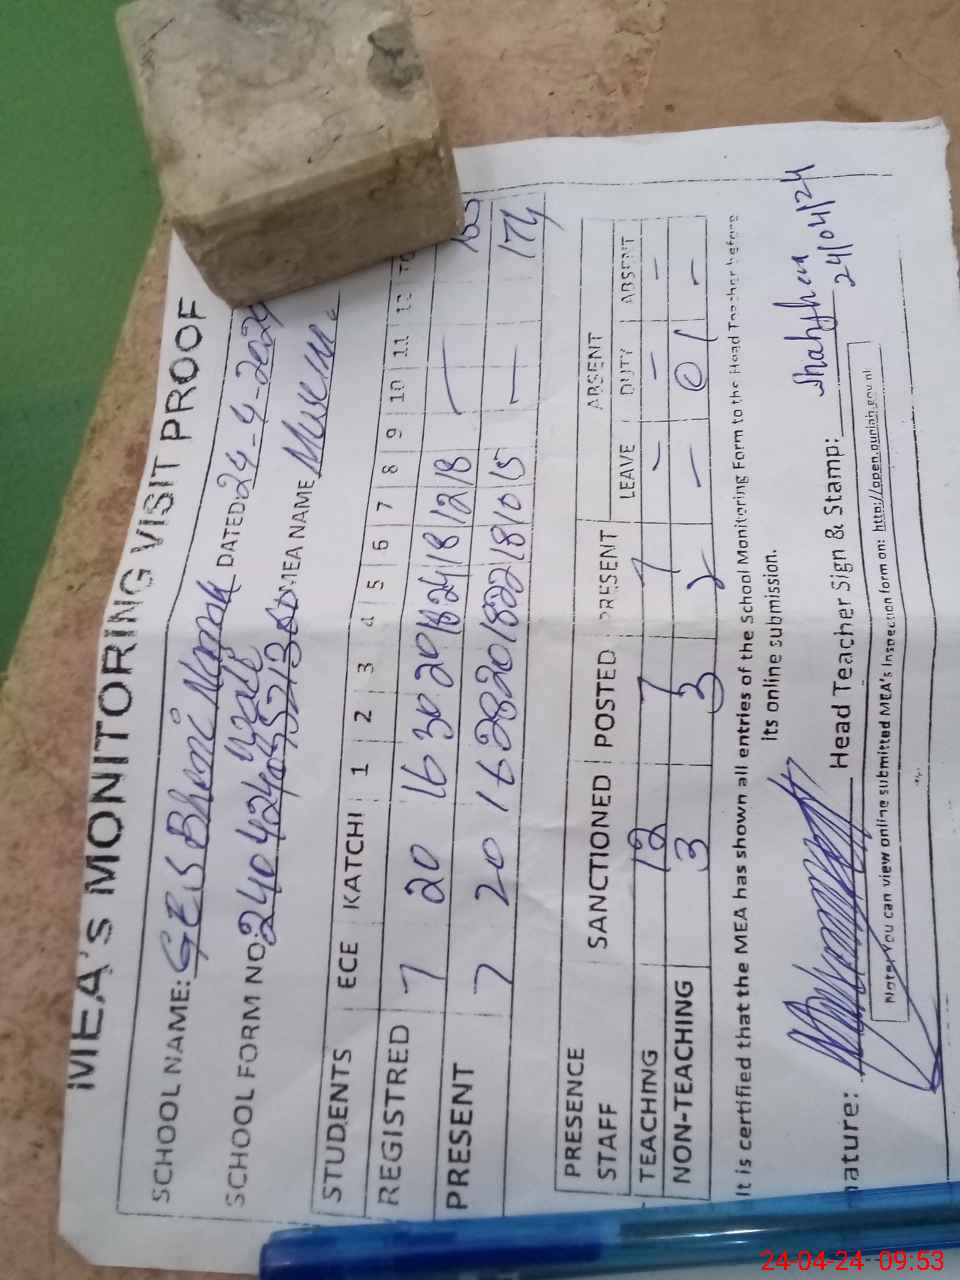 MEA's MONITORING VISIT PROOF
SCHOOL NAME: GES Bhoni DATED: 24-4-2024
SCHOOL FORM NO: MEA NAME
STUDENTS ECE KATCHI 1 2 3 4 5 6 7 8 9 10 11 12
REGISTRED 7 20 16 30 20 18 24 18 12 18 —
PRESENT 7 20 16 28 20 18 22 18 10 15 — 174
PRESENCE ABSENT
STAFF SANCTIONED POSTED PRESENT LEAVE DUTY ABSENT
TEACHING 12 7 7 - - -
NON-TEACHING 3 3 2 - 01 -
It is certified that the MEA has shown all entries of the School Monitoring Form to the Head Teacher before
its online submission.
nature: Head Teacher Sign & Stamp: 24/04/24
Note: You can view online submitted MEA's Inspection form on: http://open.punjab.gov.
24-04-24 09:53